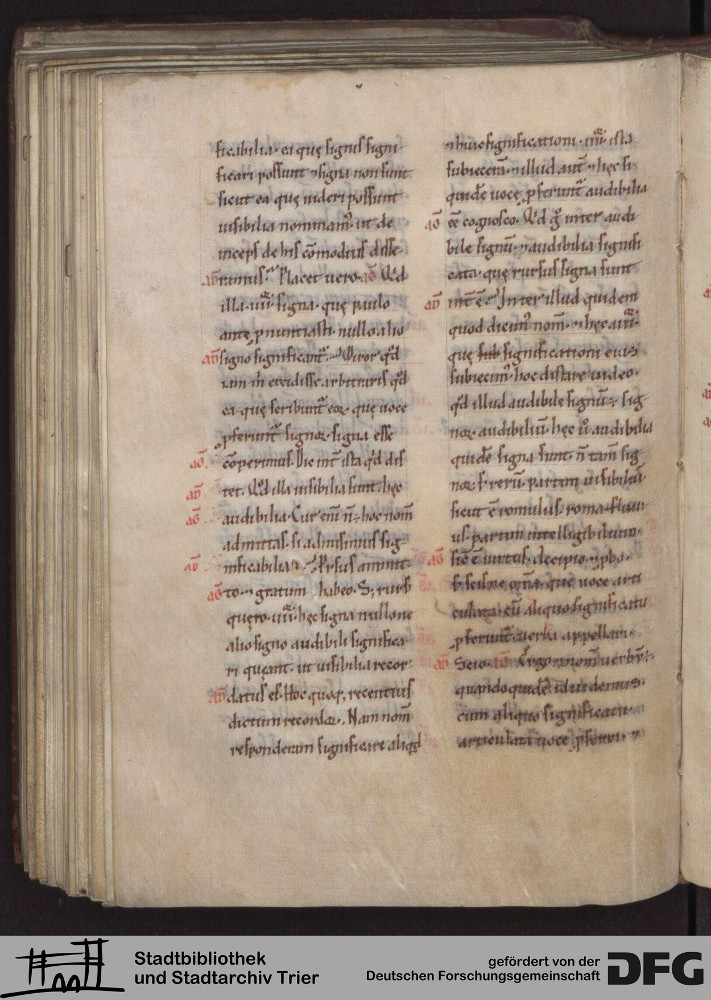 ficabilia. ea quę signis signi
ficari possunt & signa non sunt
sicut ea quę uideri possunt
uisibilia nominam. ut de
inceps de his cōmodius disse
ramus. Placet uero. aō Qd
illa signa. quę paulo
ante pnuntiasti nullo alio
signo significant. Miror qd
iam excidisse arbitraris qd
ea quę scribunt eoꝝ quę uoce
pferunt signoꝝ signa esse
cōperimus. Dic int ista qd dis
tet. Qd illa uisibilia sunt. hęc
audibilia. Cur eni n. hoc nom
admittas. si admisimus sig
nificabilia. Prsus admit
to. & gratum habeo. S; rurs
quęro. hęc signa nullo ne
alio signo audibili significa
ri queant. ut uisibilia recor
datus es. Hoc quoq; recentius
dictum recordor. Nam nom
responderam significare aliqd
& huic significationi. ista
subieceram. & illud aut & hęc si
quidē uoce pferunt audibilia
ēē cognosco. Qd g inter audi
bile signū. & audibilia signifi
cata. quę rursus signa sunt
int ē. Inter illud quidem
quod dicim nom. & hęc
quę significationi eius
subiecim hoc distare uideo.
qd illud audibile signū. sig
noꝝ audibiliū. hęc u audibilia
quidē signa sunt. n tam sig
noꝝ. s rerū partim uisibiliū.
sicut ē romulus. roma. fluui
us. partim intelligibilium.
sic ē uirtus.
quę uoce arti
culata cū aliquo significatu
pferunt. uerba appellari.
Scio. aō Ergo & nom uerbū.
quandoquidē id uidemus.
cum aliquo significatu
articulata uoce pferri. &
Stadtbibliothek
und Stadtarchiv Trier
gefördert von der
Deutschen Forschungsgemeinschaft
DFG